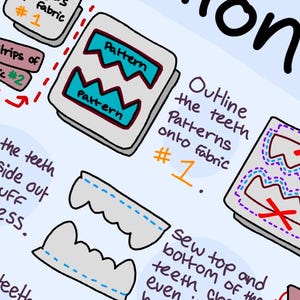 fabric
# 1
trips of
#2
Pattern
Pattern
Outline
the teeth
Patterns
onto Fabric
#1.
the teeth
side out
Sew top and
bottom of the
teeth
even
teeth